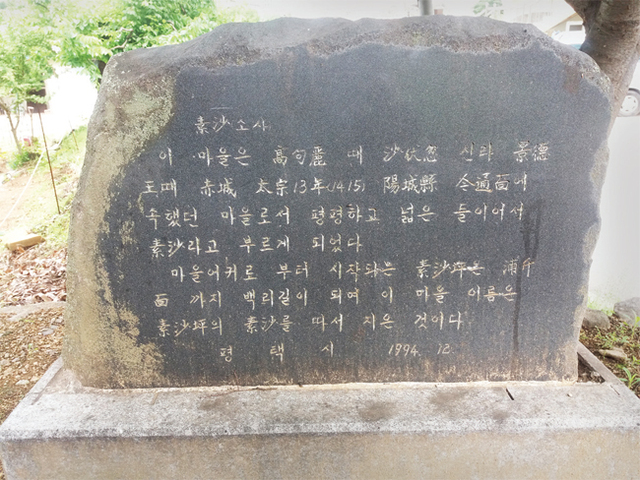 素沙소사
이 마을은 高句麗 때 沙伏忽 신라 景德
王때 赤城 太宗13年(1415) 陽城縣 令通面에
속했던 마을로서 평평하고 넓은 들이어서
素沙라고 부르게 되었다
마을어커로 부터 시작되는 素沙坪은 浦升
面 까지 백리길이 되며 이 마을 이름은
素沙坪의 素沙를 따서 지은 것이다
평택시 1994. 12.